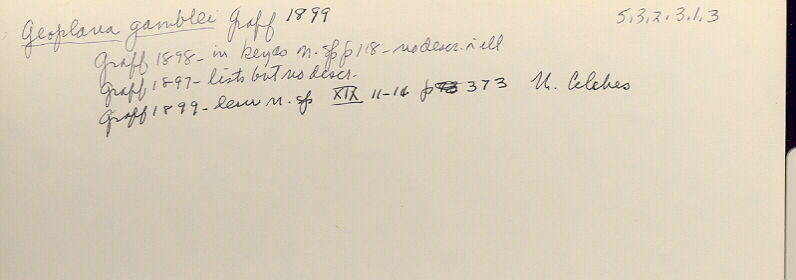 Geoplana gamblei Graff 1899 5.3.2.3.1.3
Graff 1898 - in key as n. sp p 118 - no descr. n ill
Graff 1897 - lists but no descr.
Graff 1899 - n. sp XIX 11-14 p 373 N. Celebes